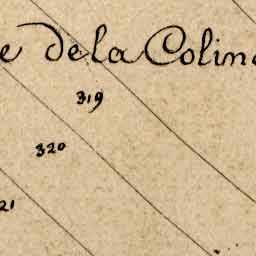 e dela Colin
319
320
21